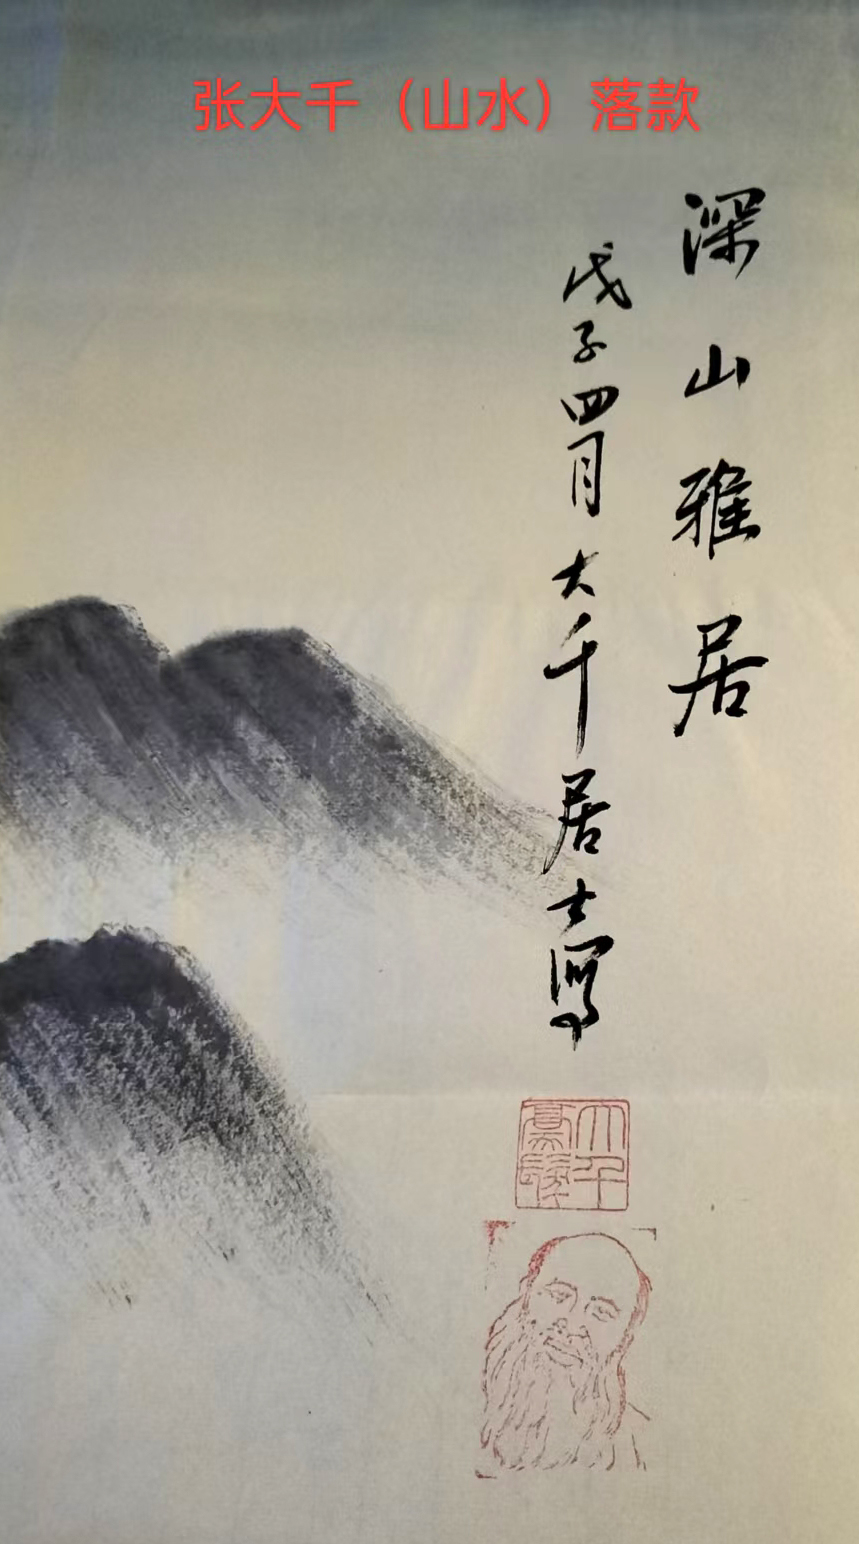 张大千（山水）落款
深山雅居
戊子四月大千居士写
大千